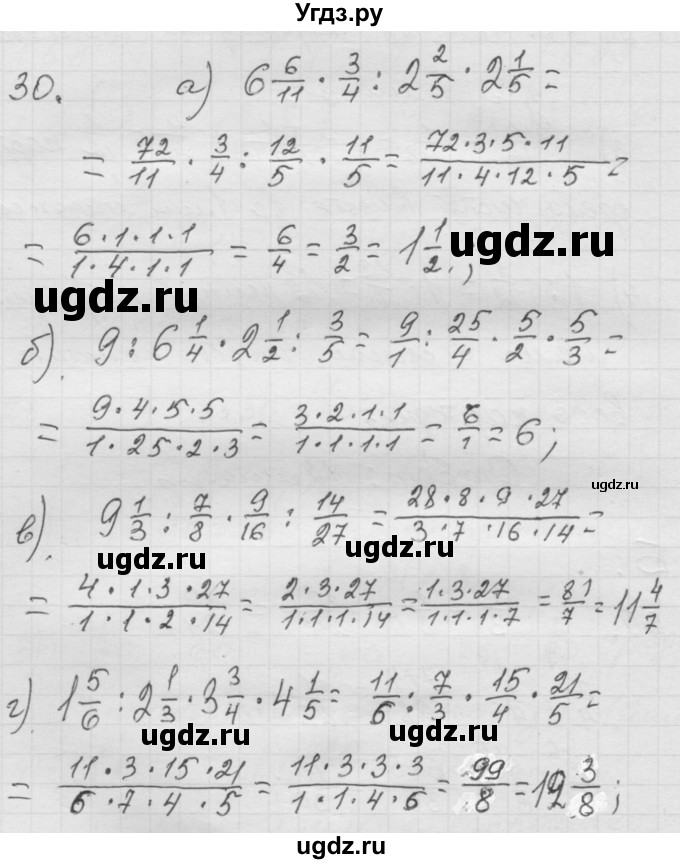 Угдз.ру
30. а) 6 6/11 · 3/4 : 2 2/5 · 2 1/5 =
= 72/11 · 3/4 : 12/5 · 11/5 = 72·3·5·11/11·4·12·5 =
= 6·1·1·1/1·4·1·1 = 6/4 = 3/2 = 1 1/2;
ugdz.ru
ugdz.ru
б). 9 : 6 1/4 · 2 1/2 : 3/5 = 9/1 : 25/4 · 5/2 · 5/3 =
= 9·4·5·5/1·25·2·3 = 3·2·1·1/1·1·1·1 = 6/1 = 6;
ugdz.ru
ugdz.ru
в). 9 1/3 : 7/8 · 9/16 : 14/27 = 28·8·9·27/3·7·16·14 =
ugdz.ru
ugdz.ru
= 4·1·3·27/1·1·2·14 = 2·3·27/1·1·1·14 = 1·3·27/1·1·1·7 = 81/7 = 11 4/7
ugdz.ru
г). 1 5/6 : 2 1/3 · 3 3/4 · 4 1/5 = 11/6 : 7/3 · 15/4 · 21/5 =
ugdz.ru
ugdz.ru
= 11·3·15·21/6·7·4·5 = 11·3·3·3/1·1·4·6 = 99/8 = 12 3/8;